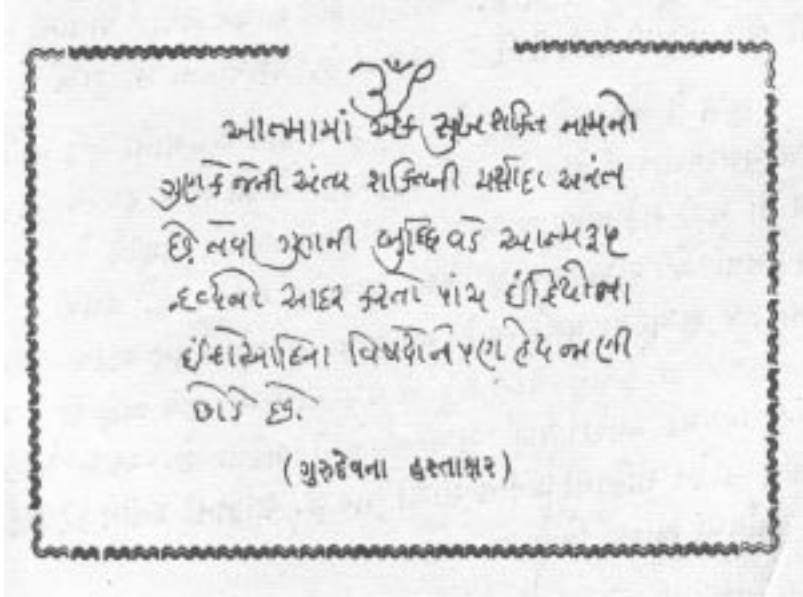 ૐ
આત્મામાં એક સુખશક્તિ નામનો
ગુણ કે જેની અંતર શક્તિની મર્યાદા અનંત
છે. તેવા ગુણની બુદ્ધિ વડે આત્મરૂપ
દ્રવ્યનો આદર કરતો પાંચ ઈંદ્રિયોના
ઈંદ્રાદિના વિષયોને પણ હેય જાણી
છોડે છે.
(ગુરુદેવના હસ્તાક્ષર)